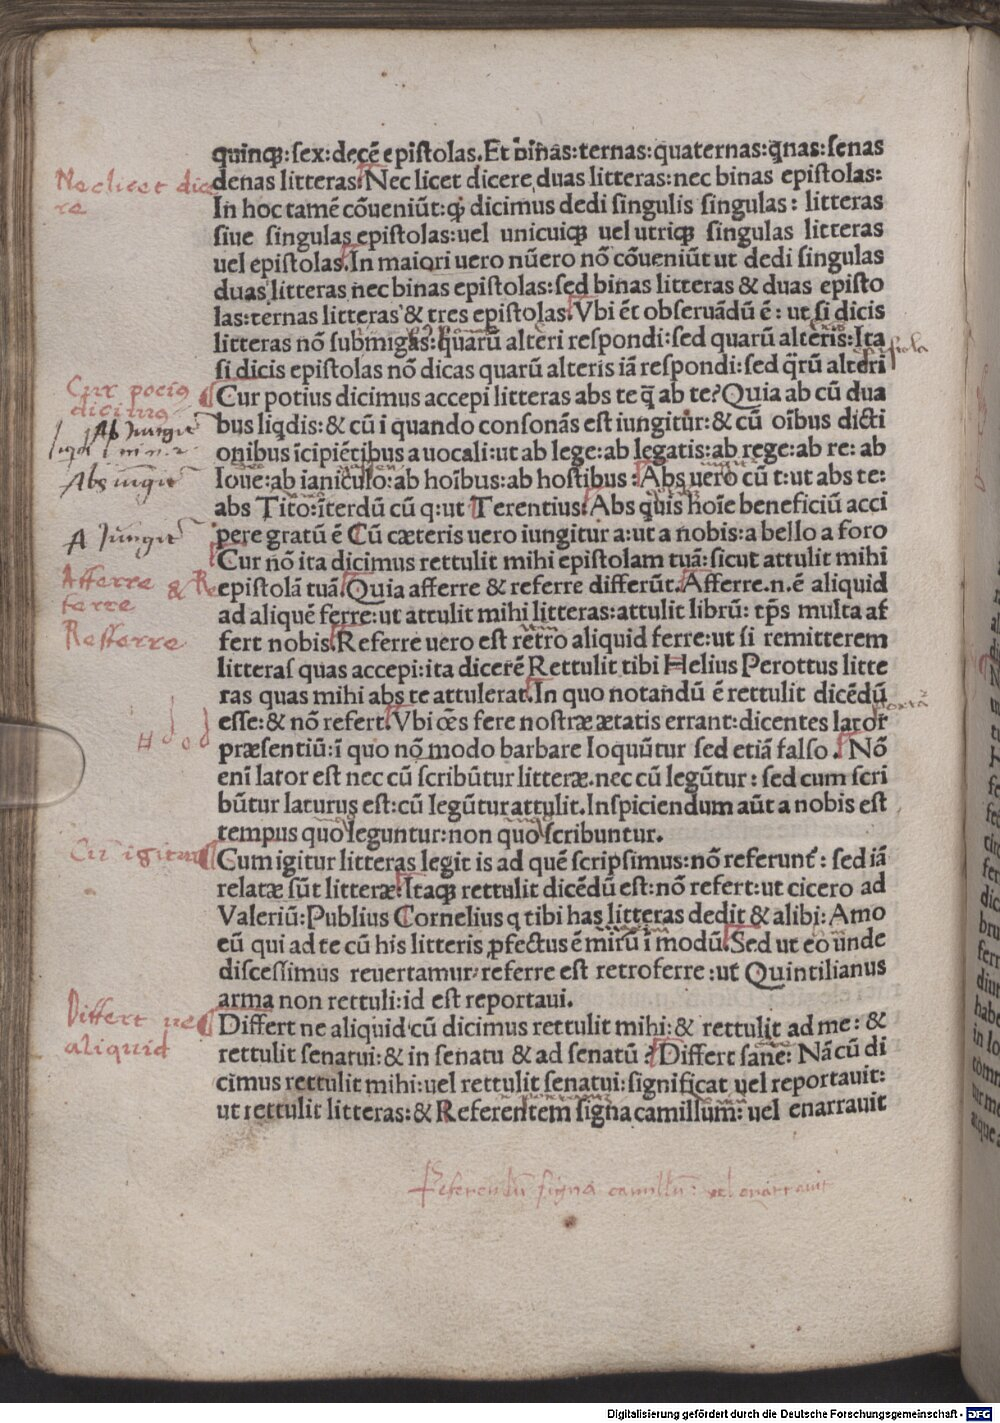 quinqꝫ:ſex:decē epiſtolas.Et binas:ternas:quaternas:qnas:ſenas
denas litteras.Nec licet dicere duas litteras:nec binas epiſtolas:
In hoc tamē cōueniūt:ꝙ dicimus dedi ſingulis ſingulas: litteras
ſiue ſingulas epiſtolas:uel unicuiqꝫ uel utriqꝫ ſingulas litteras
uel epiſtolas.In maiori uero nūero nō cōueniūt ut dedi ſingulas
duas litteras nec binas epiſtolas:ſed binas litteras & duas epiſto
las:ternas litteras & tres epiſtolas.Vbi ēt obſeruādū ē: ut ſi dicis
litteras nō ſubmigas:quarū alteri reſpondi:ſed quarū alteris:Ita
ſi dicis epiſtolas nō dicas quarū alteris iā reſpondi:ſed q̄rū alteri
Cur potius dicimus accepi litteras abs te q̄ ab te?Quia ab cū dua
bus liqdis:& cū i quando conſonās eſt iungitur:& cū oībus dicti
onibus īcipiētibus a uocali:ut ab lege:ab legatis:ab rege:ab re: ab
Ioue:ab ianiculo:ab hoībus:ab hoſtibus:Abs uero cū t:ut abs te:
abs Tito:īterdū cū q:ut Terentius.Abs quis hoīe beneficiū acci
pere gratū ē Cū cæteris uero iungitur a:ut a nobis:a bello a foro
Cur nō ita dicimus rettulit mihi epiſtolam tuā: ſicut attulit mihi
epiſtolā tuā.Quia afferre & referre differūt.Afferre.n.ē aliquid
ad aliquē ferre:ut attulit mihi litteras:attulit librū: tp̄s multa af
fert nobis.Referre uero eſt retro aliquid ferre:ut ſi remitterem
litteraſ quas accepi:ita dicerē Rettulit tibi Helius Perottus litte
ras quas mihi abs te attulerat.In quo notandū ē rettulit dicēdū
eſſe:& nō refert.Vbi oēs fere noſtræ ætatis errant:dicentes lator
præſentiū:ī quo nō modo barbare loquūtur ſed etiā falſo. Nō
enī lator eſt nec cū ſcribūtur litteræ.nec cū legūtur: ſed cum ſcri
būtur laturus eſt:cū legūtur attulit.Inſpiciendum aūt a nobis eſt
tempus quo leguntur:non quo ſcribuntur.
Cum igitur litteras legit is ad quē ſcripſimus:nō referunt̄: ſed iā
relatæ ſūt litteræ:Itaqꝫ rettulit dicēdū eſt:nō refert:ut cicero ad
Valeriū:Publius Cornelius q tibi has litteras dedit & alibi: Amo
eū qui ad te cū his litteris ꝓfectus ē mirū ī modū.Sed ut eo unde
diſceſſimus reuertamur:referre eſt retroferre:ut Quintilianus
arma non rettuli:id eſt reportaui.
Differt ne aliquid cū dicimus rettulit mihi:& rettulit ad me: &
rettulit ſenatui:& in ſenatu & ad ſenatū? Differt ſane: Nā cū di
cimus rettulit mihi:uel rettulit ſenatui:ſignificat uel reportauit:
ut rettulit litteras:& Referentem ſigna camillum: uel enarrauit
Nec licet dice
re
epistola
Cur pocius
dicimus
Ab Jungit᷑
Abs iungit᷑
A Jungit᷑
Afferre & Re
ferre
Refferre
Cū igitur
Differt ne
aliquid
Referentū signa camillū: vel enarrauit
Digitalisierung gefördert durch die Deutsche Forschungsgemeinschaft - DFG